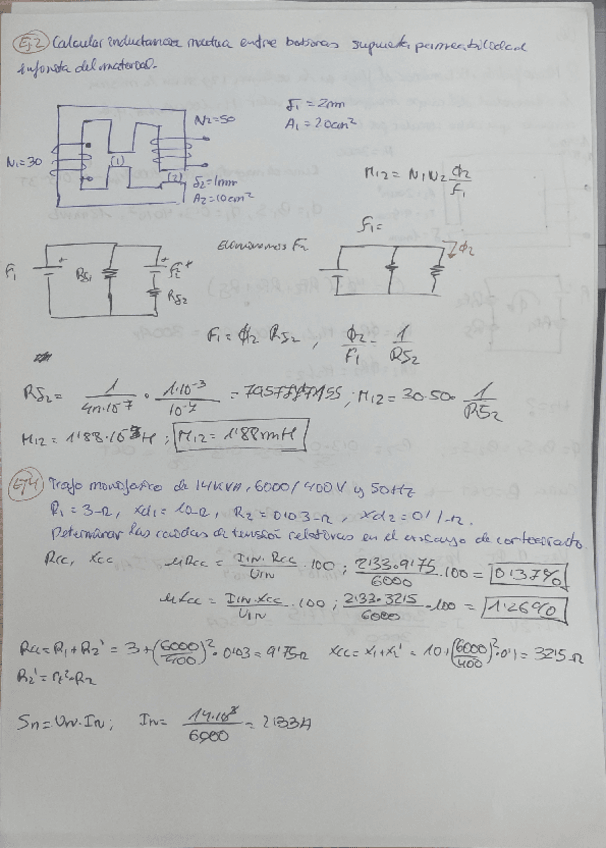 Ej.2 Calcular inductancia mutua entre bobinas supuesta permeabilidad
infinita del material.
N1=30
N2=50
(1)
(2)
δ1=2mm
A1=20cm²
δ2=1mm
A2=10cm²
M12=N1N2 ϕ2/F1
F1=
F1
Rδ1
F2
Rδ2
Eliminamos F2
ϕ2
F1=ϕ2 Rδ2, ϕ2/F1 = 1/Rδ2
M12=30·50·1/Rδ2
M12=1'88·10⁻³H; M12=1'88mH
Trafo monofásico de 14KVA, 6000/400V y 50Hz
R1=3Ω, Xd1=10Ω, R2=0'03Ω, Xd2=0'1Ω.
Determinar las caídas de tensión relativas en el ensayo de cortocircuito.
Rcc, Xcc μRcc=I1N·Rcc/U1N·100; 2'33·9'75/6000·100=0'37%
μXcc=I1N·Xcc/U1N·100; 2'33·32'5/6000·100=1'26%
Rcc=R1+R2'=3+(6000/400)²·0'03=9'75Ω Xcc=X1+X2'=10+(6000/400)²·0'1=32'5Ω
R2'=rt²·R2
Sn=Un·In; In=14·10³/6000=2'33A